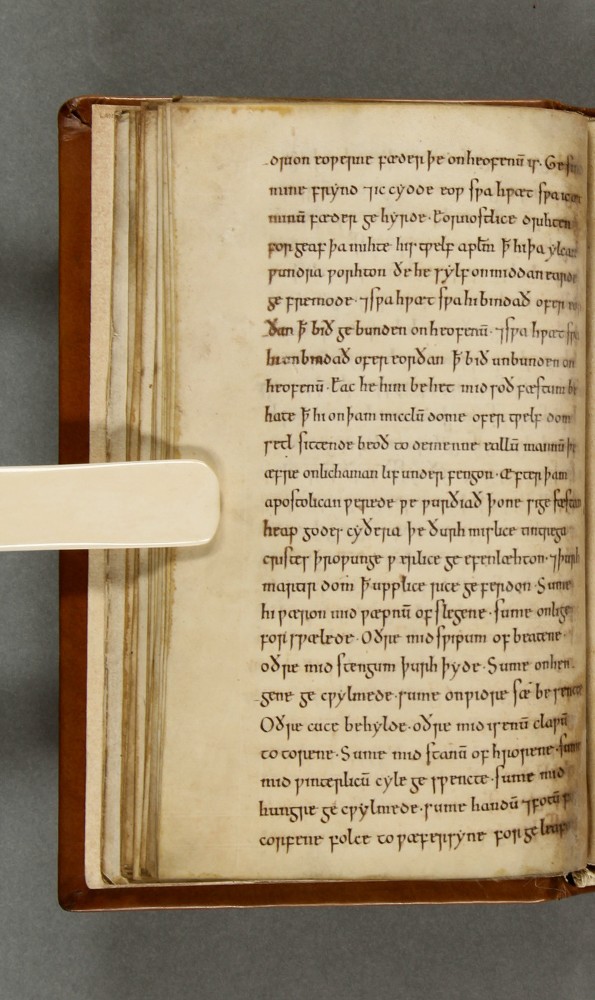 drihten eoweres fæder þe on heofenū is. Ge sin
mine frynd ⁊ic cydde eow swa hwæt swa ic on
minū fæder gehyrde. Eornostlice drihten
forgeaf þa mihte his twelf apłm þ hi þa ylcan
wundra worhton ðe he sylf on middanearde
gefremode. ⁊swa hwæt swa hi bindað ofer eo
rðan þ bið gebunden on heofenū. ⁊swa hwæt swa
hi unbindað ofer eorðan þ bið unbunden on
heofenū. Eac he him behet mid soðfæstum be
hate þ hi on þam micclū dome ofer twelf dom
setl sittende beoð to demenne eallū mannū þe
æfre on lichaman lif underfengon. Æfter þam
apostolican werede we wurðiað þone sigefæstan
heap godes cyðera þe ðurh mislice tintrega
cristes þrowunge werlice geefenlæhton. ⁊þurh
martirdom þ upplice rice geferdon. Sume
hi wæron mid wæpnū ofslegene. sume on lige
forswælede. Oðre mid swipum ofbeatene.
oðre mid stengum þurhþyde. Sume on hen
gene gecwylmede. sume on widre sæ besencte
Oðre cuce behylde. oðre mid isenū clawū
totorene. Sume mid stanū ofhrorene. sume
mid winterlicū cyle geswencte. sume mid
hungre gecwylmede. sume handū ⁊fotū f
corfene folce to wæfersyne for geleaf